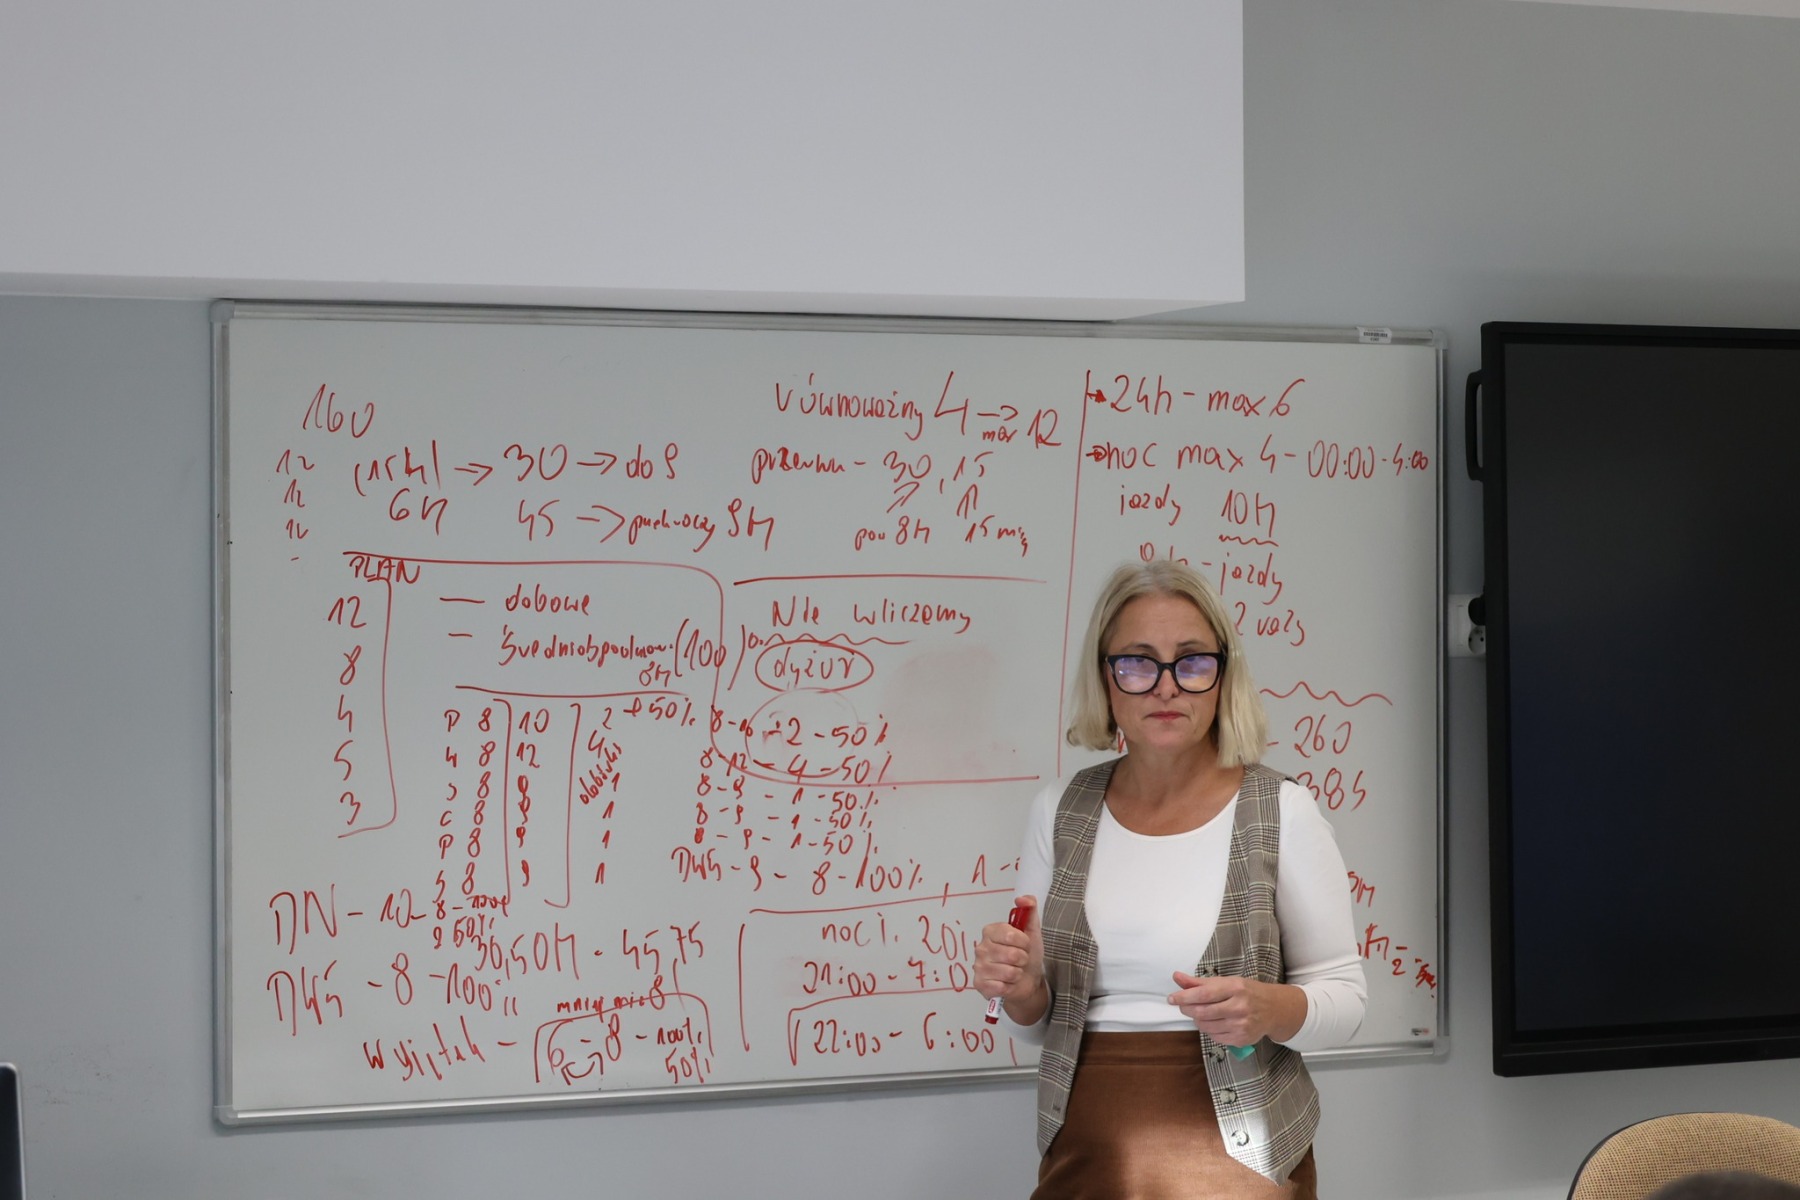 160
12
12
12
(15h) → 30 → do 9
6h 45 → 9h
równoważny 4 → 12
max
przerwa - 30, 15
pow 8h 15 min
→ 24h - max 6
→ noc max 4 - 00:00-4:00
jazdy 10h
jazdy
2 razy
PLAN
12
8
4
5
3
— dobowe
8h (100)
Nie wliczamy
dyżur
P 8 10 2 50%
W 8 12 4
Ś 8 9 1
C 8 9 1
P 8 9 1
S 8 9 1
8-10 - 2 - 50%
8-12 - 4 - 50%
8-9 - 1 - 50%
8-9 - 1 - 50%
8-9 - 1 - 50%
DWŚ - 9 - 8 - 100%, 1 -
260
DN - 10 - 8 - 100%
2 50%
DWŚ - 8 - 100%
30,50h · 45,75
mniej niż 8
wyjątek - 6 - 8 - 100%
50%
21:00 - 7:0
22:00 - 6:00